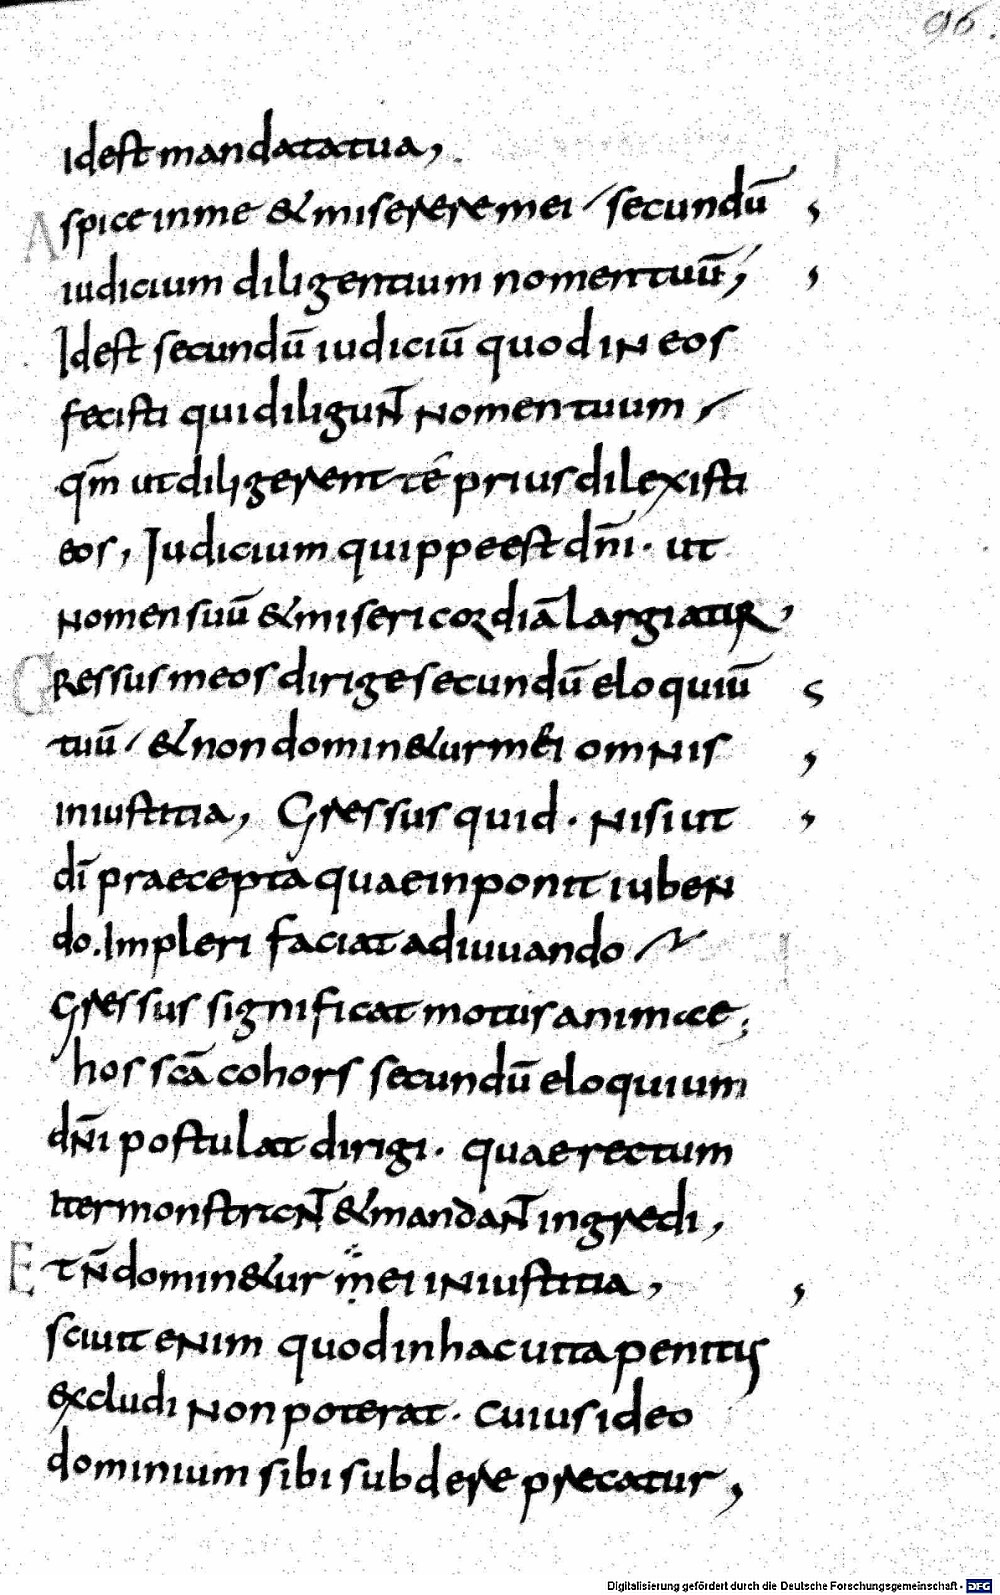 96.
Idest mandata tua,
Aspice in me & miserere mei / secundū
iudicium diligentium nomen tuū,
Idest secundū iudiciū quod in eos
fecisti qui diligun̄t nomen tuum /
qm̄ ut diligerent te prius dilexisti
eos, Iudicium quippe est dn̄i · ut
nomen suū & misericordiā largiatur,
Gressus meos dirige secundū eloquiū
tuū / & non domin&ur mei omnis
iniustitia, Gressus quid · nisi ut
dī praecepta quae inponit iuben
do. Impleri faciat adiuuando
Gressus significat motus animae;
hos scā cohors secundū eloquium
dn̄i postulat dirigi · quae rectum
Iter monstran̄t & mandan̄t ingredi,
Et n̄ domin&ur mei iniustitia,
sciuit enim quod in hac uita penitus
excludi non poterat · cuius ideo
dominium sibi subdere precatur,
Digitalisierung gefördert durch die Deutsche Forschungsgemeinschaft - DFG